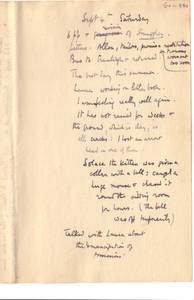 Sept 6th Saturday
6 pp +
Letters: Allen,
Bus to Framlingham + returned
The best day this summer.
Laura working on letter book.
I am feeling really well again.
It has not rained for weeks &
the ground which is clay, is
all cracks. I lost an arrow
head in one of them.
Solace the kitten was given a
collar with a bell: caught a
huge mouse & chased it
round the sitting room
for hours. (The bell
was off temporarily)
Talked with Laura about
the "emancipation of